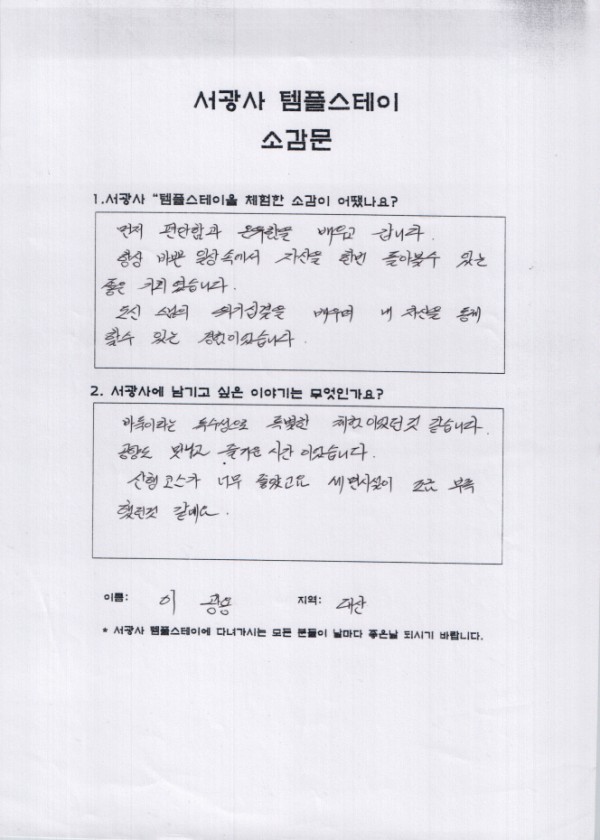 서광사 템플스테이
소감문
1.서광사 “템플스테이을 체험한 소감이 어땠나요?
먼저 편안함과 배우고 갑니다.
항상 바쁜 일상속에서 자신을 한번 돌아볼수 있는
좋은 기회 였습니다.
스님의 배우며 내 자신을 통제
할수 있는 경험이었습니다.
2. 서광사에 남기고 싶은 이야기는 무엇인가요?
바둑이라는 특수성으로 특별한 체험이었던것 같습니다.
공양도 맛나고 즐거운 시간 이었습니다.
산행코스가 너무 좋았고요 세면시설이 조금 부족
했던것 같네요.
이름: 이 지역:
* 서광사 템플스테이에 다녀가시는 모든 분들이 날마다 좋은날 되시기 바랍니다.